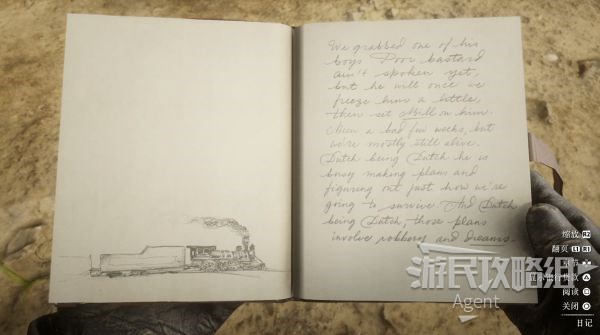 We grabbed one of his
boys Poor bastard
ain't spoken yet,
but he will once we
freeze him a little,
then set Bill on him.
Been a bad few weeks, but
we're mostly still alive.
Dutch being Dutch he is
busy making plans and
figuring out just how we're
going to survive. And Dutch
being Dutch, those plans
involve robbery and dreams.
缩放 R2
翻页 L1 R1
阅读
关闭
日记
游民攻略组
Agent